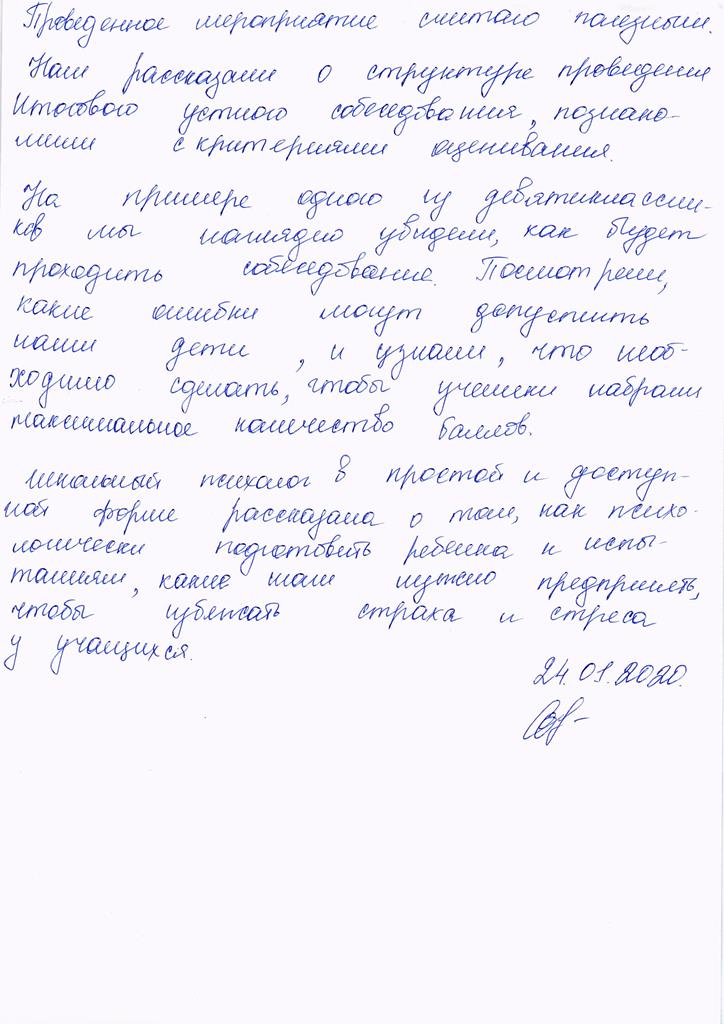 Проведенное мероприятие считаю полезным.
Нам рассказали о структуре проведения
Итогового устного собеседования, познако-
мили с критериями оценивания.
На примере одного из девятиклассни-
ков мы наглядно увидели, как будет
проходить собеседование. Посмотрели,
какие ошибки могут допустить
наши дети, и узнали, что необ-
ходимо сделать, чтобы ученики набрали
максимальное количество баллов.
Школьный психолог в простой и доступ-
ной форме рассказала о том, как психо-
логически подготовить ребенка к испы-
таниям, какие шаги нужно предпринять,
чтобы избежать страха и стреса
у учащихся.
24.01.2020.